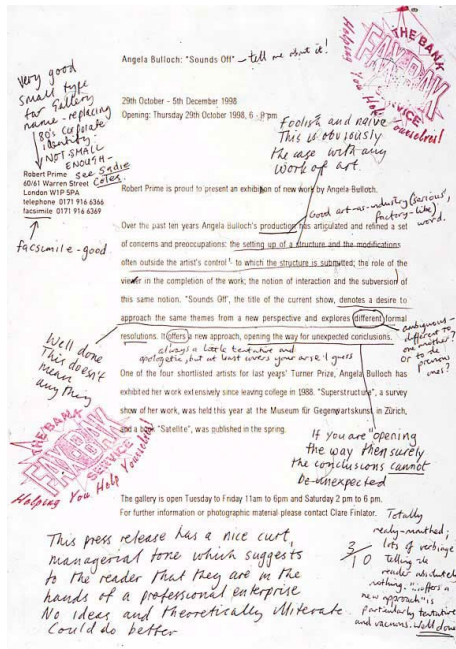 Angela Bulloch: "Sounds Off"
tell me about it!
THE BANK
FAX-BAK
SERVICE
Helping You Help Yourselves!
very good
small type
for Gallery
name - replacing
80's corporate
identity.
NOT SMALL
ENOUGH -
see Sadie
Coles.
29th October - 5th December 1998
Opening: Thursday 29th October 1998, 6 - 8 pm
Foolish and naive
This is obviously
the case with any
work of art.
Robert Prime
60/61 Warren Street
London W1P 5PA
telephone 0171 916 6366
facsimile 0171 916 6369
facsimile - good.
Robert Prime is proud to present an exhibition of new work by Angela Bulloch.
Good art-as-industry (serious,
factory-like)
word.
Over the past ten years Angela Bulloch's production has articulated and refined a set
of concerns and preoccupations: the setting up of a structure and the modifications -
often outside the artist's control - to which the structure is submitted; the role of the
viewer in the completion of the work; the notion of interaction and the subversion of
this same notion. "Sounds Off", the title of the current show, denotes a desire to
approach the same themes from a new perspective and explores different formal
resolutions. It offers a new approach, opening the way for unexpected conclusions.
ambiguous -
different to
one another?
or to de
previous
ones?
always a little tentative and
apologetic, but at least covers your arse I guess
Well done
This doesn't
mean
anything
One of the four shortlisted artists for last years' Turner Prize, Angela Bulloch has
exhibited her work extensively since leaving college in 1988. "Superstructure", a survey
show of her work, was held this year at the Museum für Gegenwartskunst in Zürich,
and a book "Satellite", was published in the spring.
If you are "opening
the way" then surely
the conclusions cannot
be unexpected
THE BANK
FAX-BAK
SERVICE
Helping You Help Yourselves!
The gallery is open Tuesday to Friday 11am to 6pm and Saturday 2 pm to 6 pm.
For further information or photographic material please contact Clare Finlator.
This press release has a nice curt,
managerial tone which suggests
to the reader that they are in the
hands of a professional enterprise
No ideas and theoretically illiterate
Could do better
3/10
Totally
mealy-mouthed;
lots of verbiage
Telling the
reader absolutely
nothing. "..offers a
new approach" is
particularly tentative
and vacuous. Well done